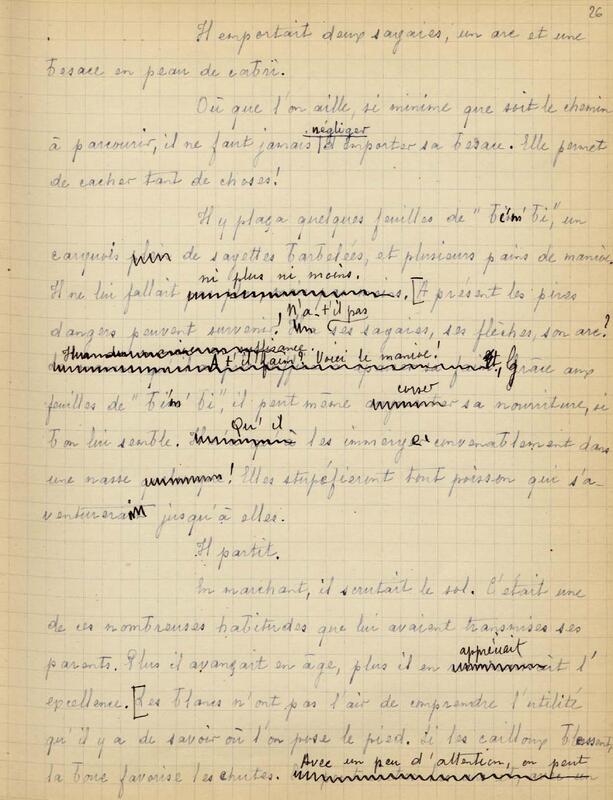 26
Il emportait deux sagaies, un arc et une
besace en peau de cabri.
Où que l'on aille, si minime que soit le chemin
à parcourir, il ne faut jamais négliger d'emporter sa besace. Elle permet
de cacher tant de choses!
Il y plaça quelques feuilles de "Tim'bi", un
carquois plein de sagettes barbelées, et plusieurs pains de manioc.
Il ne lui fallait ni plus ni moins. [A présent les pires
dangers peuvent survenir! N'a-t'il pas ses sagaies, ses flèches, son arc?
A t'il faim? Voici le manioc! Grâce aux
feuilles de "Tim'bi", il peut même corser sa nourriture, si
bon lui semble. Qu'il les immerge convenablement dans
une nasse! Elles stupéfieront tout poisson qui s'a-
venturera jusqu'à elles.
Il partit.
En marchant, il scrutait le sol. C'était une
de ces nombreuses habitudes que lui avaient transmises ses
parents. Plus il avançait en âge, plus il en appréciait l'
excellence. [Les blancs n'ont pas l'air de comprendre l'utilité
qu'il y a de savoir où l'on pose le pied. Si les cailloux blessent,
la boue favorise les chutes. Avec un peu d'attention, on peut